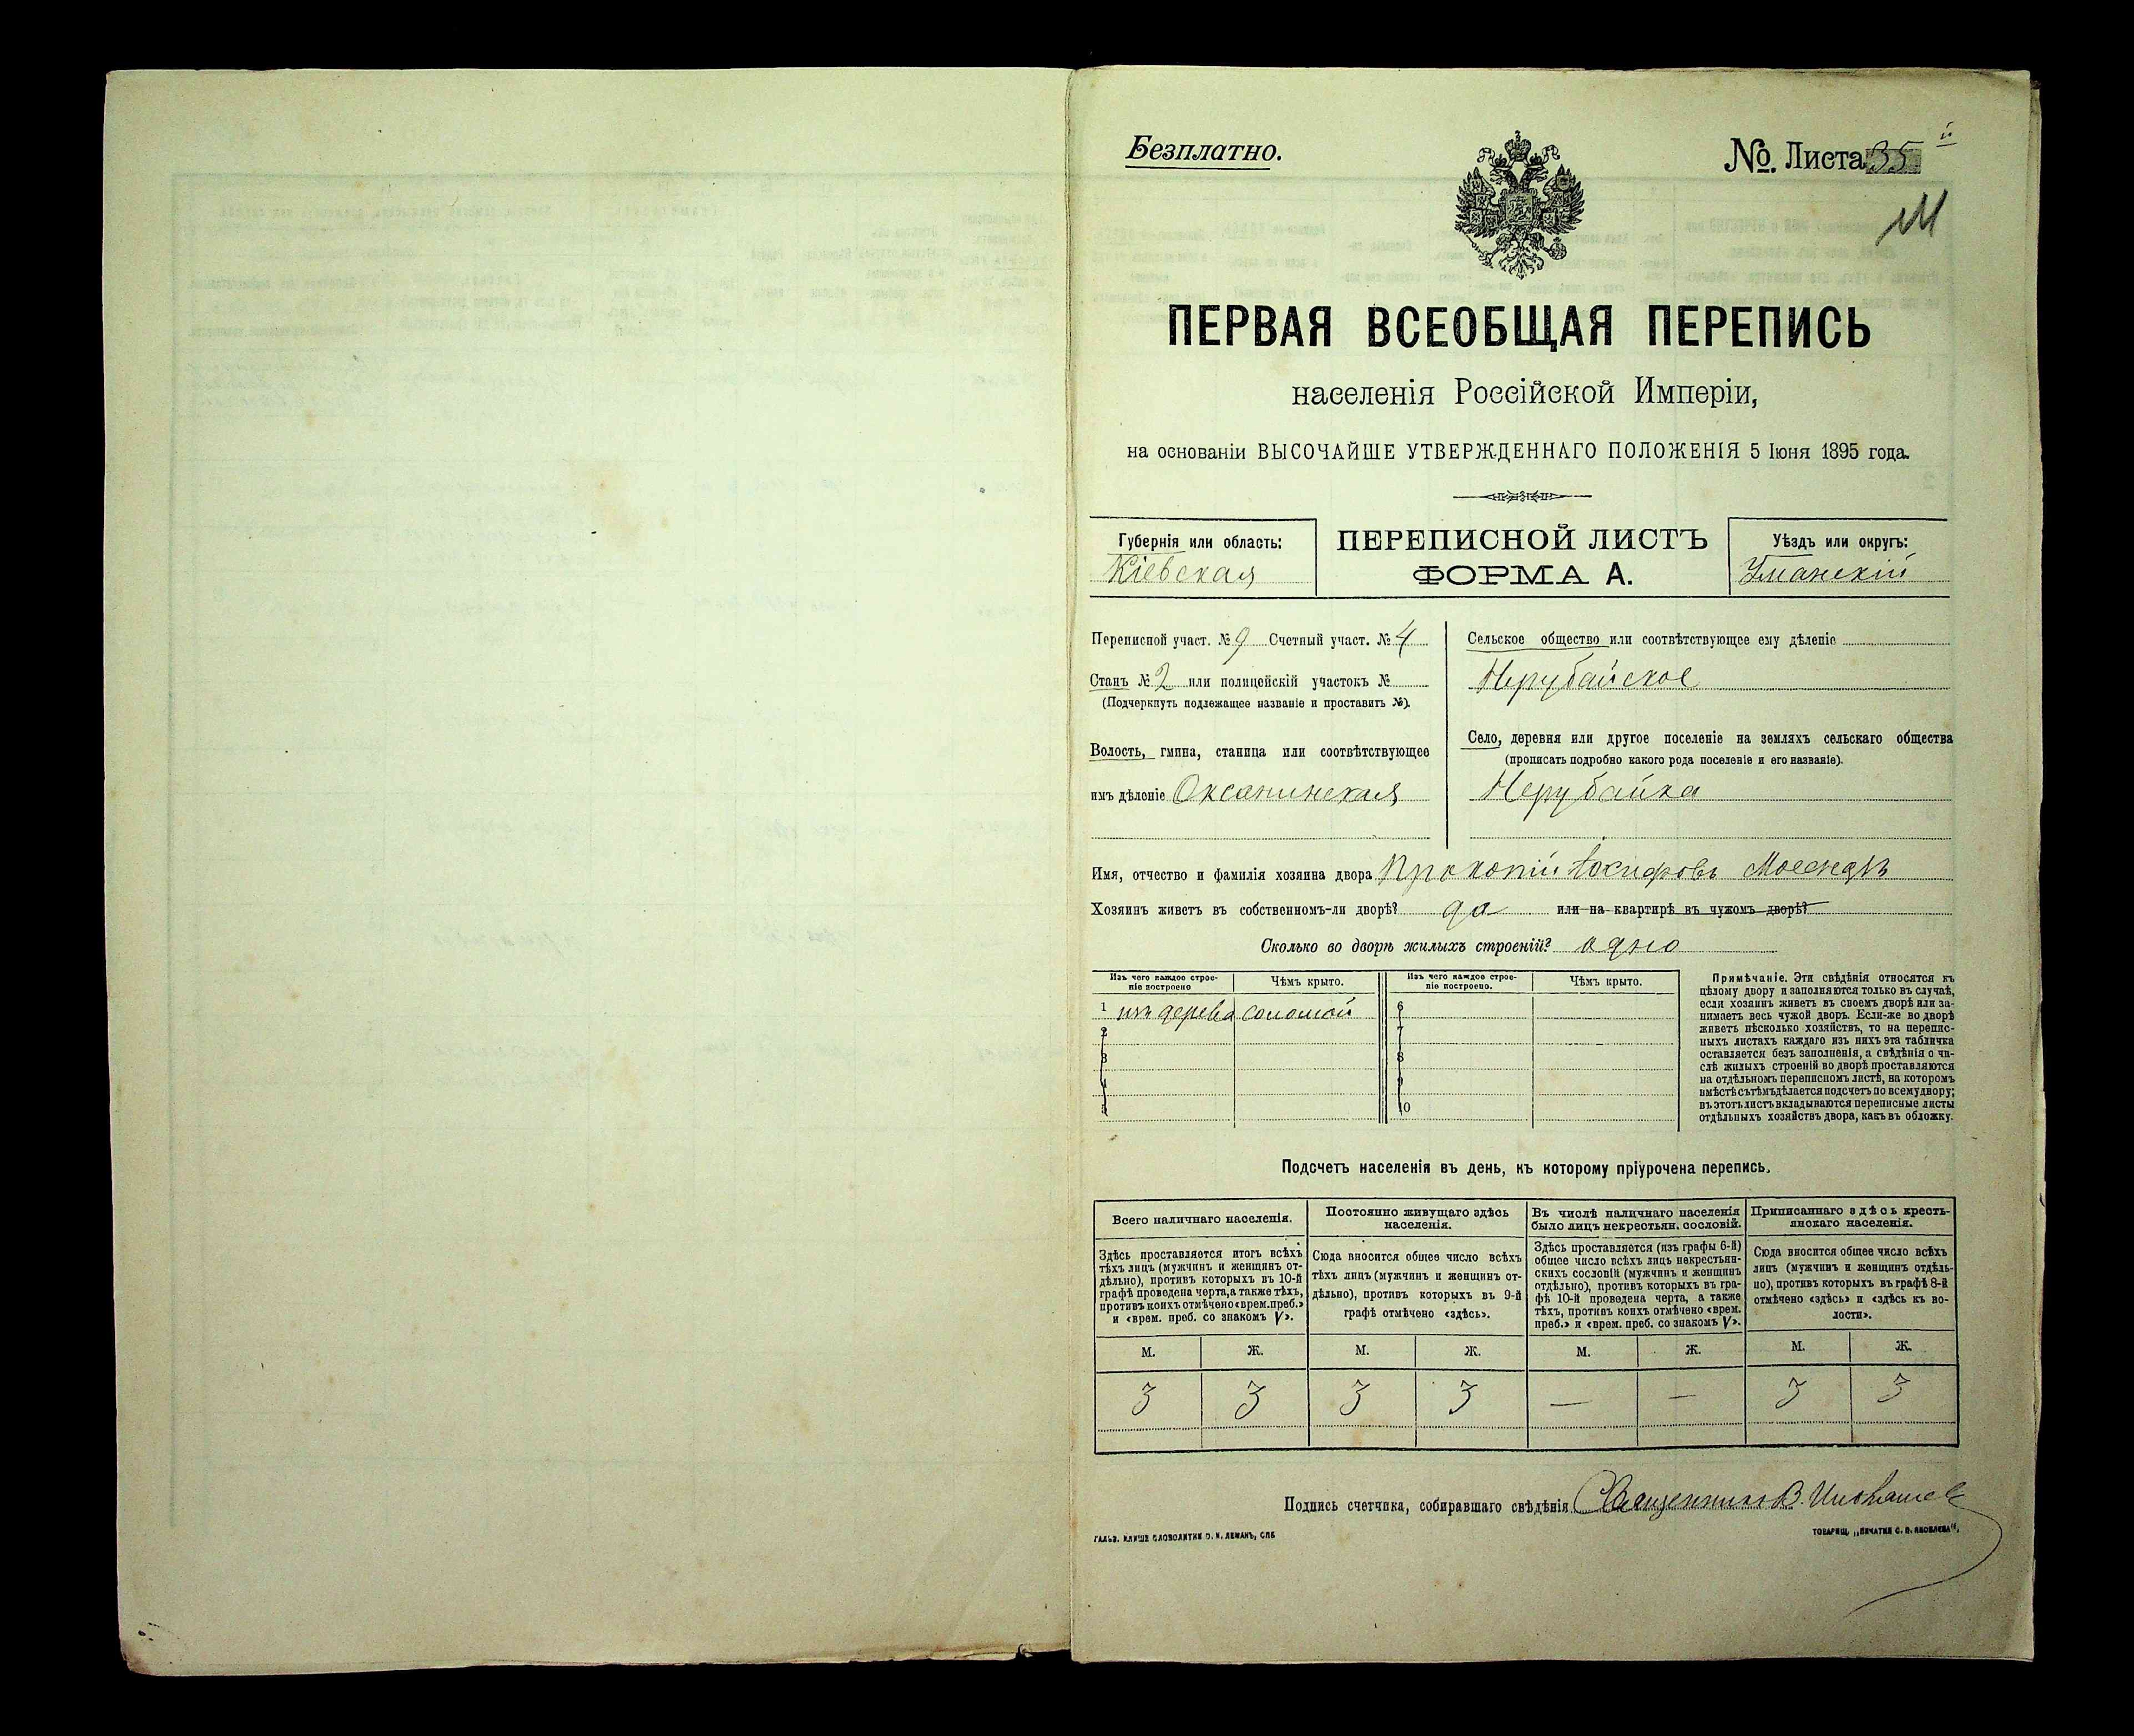 Безплатно.
№. Листа 35 й
М
ПЕРВАЯ ВСЕОБЩАЯ ПЕРЕПИСЬ
населенія Россійской Имперіи,
на основаніи ВЫСОЧАЙШЕ УТВЕРЖДЕННАГО ПОЛОЖЕНІЯ 5 Іюня 1895 года.
Губернія или область:
Кіевская
ПЕРЕПИСНОЙ ЛИСТЪ
ФОРМА А.
Уѣздъ или округъ:
Уманскій
Переписной участ. № 9 Счетный участ. № 4
Станъ № 2 или полицейскій участокъ №
(Подчеркнуть подлежащее названіе и проставить №).
Волость, гмина, станица или соотвѣтствующее
имъ дѣленіе Оксанинская
Сельское общество или соотвѣтствующее ему дѣленіе
Нерубайское
Село, деревня или другое поселеніе на земляхъ сельскаго общества
(прописать подробно какого рода поселеніе и его названіе).
Нерубайка
Имя, отчество и фамилія хозяина двора Прокопій Іосифовъ
Хозяинъ живетъ въ собственномъ-ли дворѣ? да или на квартирѣ въ чужомъ дворѣ?
Сколько во дворѣ жилыхъ строеній? одно
Изъ чего каждое строе-
ніе построено
Чѣмъ крыто.
Изъ чего каждое строе-
ніе построено.
Чѣмъ крыто.
1 изъ дерева соломой
2
3
4
5
6
7
8
9
10
Примѣчаніе. Эти свѣдѣнія относятся къ
цѣлому двору и заполняются только въ случаѣ,
если хозяинъ живетъ въ своемъ дворѣ или за-
нимаетъ весь чужой дворъ. Если-же во дворѣ
живетъ нѣсколько хозяйствъ, то на перепис-
ныхъ листахъ каждаго изъ нихъ эта табличка
оставляется безъ заполненія, а свѣдѣнія о чи-
слѣ жилыхъ строеній во дворѣ проставляются
на отдѣльномъ переписномъ листѣ, на которомъ
вмѣстѣ съ тѣмъ дѣлается подсчетъ по всему двору;
въ этотъ листъ вкладываются переписные листы
отдѣльныхъ хозяйствъ двора, какъ въ обложку.
Подсчетъ населенія въ день, къ которому пріурочена перепись.
Всего наличнаго населенія.
Здѣсь проставляется итогъ всѣхъ
тѣхъ лицъ (мужчинъ и женщинъ от-
дѣльно), противъ которыхъ въ 10-й
графѣ проведена черта, а также тѣхъ,
противъ коихъ отмѣчено «врем. преб.»
и «врем. преб. со знакомъ V».
Постоянно живущаго здѣсь
населенія.
Сюда вносится общее число всѣхъ
тѣхъ лицъ (мужчинъ и женщинъ от-
дѣльно), противъ которыхъ въ 9-й
графѣ отмѣчено «здѣсь».
Въ числѣ наличнаго населенія
было лицъ некрестьян. сословій.
Здѣсь проставляется (изъ графы 6-й)
общее число всѣхъ лицъ некрестьян-
скихъ сословій (мужчинъ и женщинъ
отдѣльно), противъ которыхъ въ гра-
фѣ 10-й проведена черта, а также
тѣхъ, противъ коихъ отмѣчено «врем.
преб.» и «врем. преб. со знакомъ V».
Приписаннаго здѣсь кресть-
янскаго населенія.
Сюда вносится общее число всѣхъ
лицъ (мужчинъ и женщинъ отдѣль-
но), противъ которыхъ въ графѣ 8-й
отмѣчено «здѣсь» и «здѣсь къ во-
лости».
М. Ж. М. Ж. М. Ж. М. Ж.
3 3 3 3 — — 3 3
Подпись счетчика, собиравшаго свѣдѣнія Священникъ В.
ГАЛЬВ. КЛИШЕ СЛОВОЛИТНИ О. И. ЛЕМАНЪ, СПБ
ТОВАРИЩ. „ПЕЧАТНЯ С. П. ЯКОВЛЕВА“.